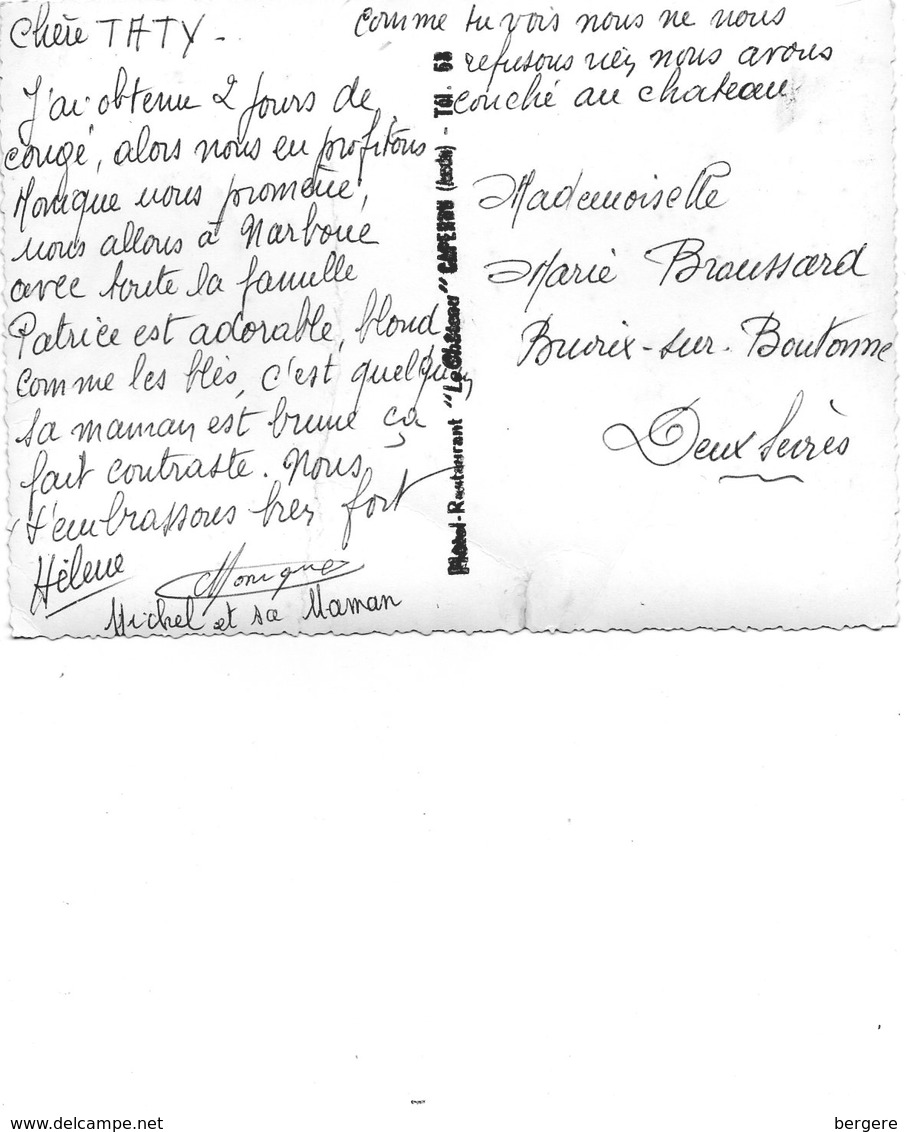 Chère TATY -
J'ai obtenu 2 jours de
congé, alors nous en profitons
Monique nous promène,
nous allons à Narbone
avec toute la famille
Patrice est adorable, blond
comme les blés, c'est quelqu'un
sa maman est brune ça
fait contraste. Nous
t'embrassons bien fort
Hélène
Monique
Michel et sa Maman
comme tu vois nous ne nous
refusons rien nous avons
couché au chateau
Hotel-Restaurant "Le Château" CAPENDU (Aude) - Tél. 68
Mademoiselle
Marie Broussard
Brieux-sur-Boutonne
Deux Sèvres
www.delcampe.net
bergere